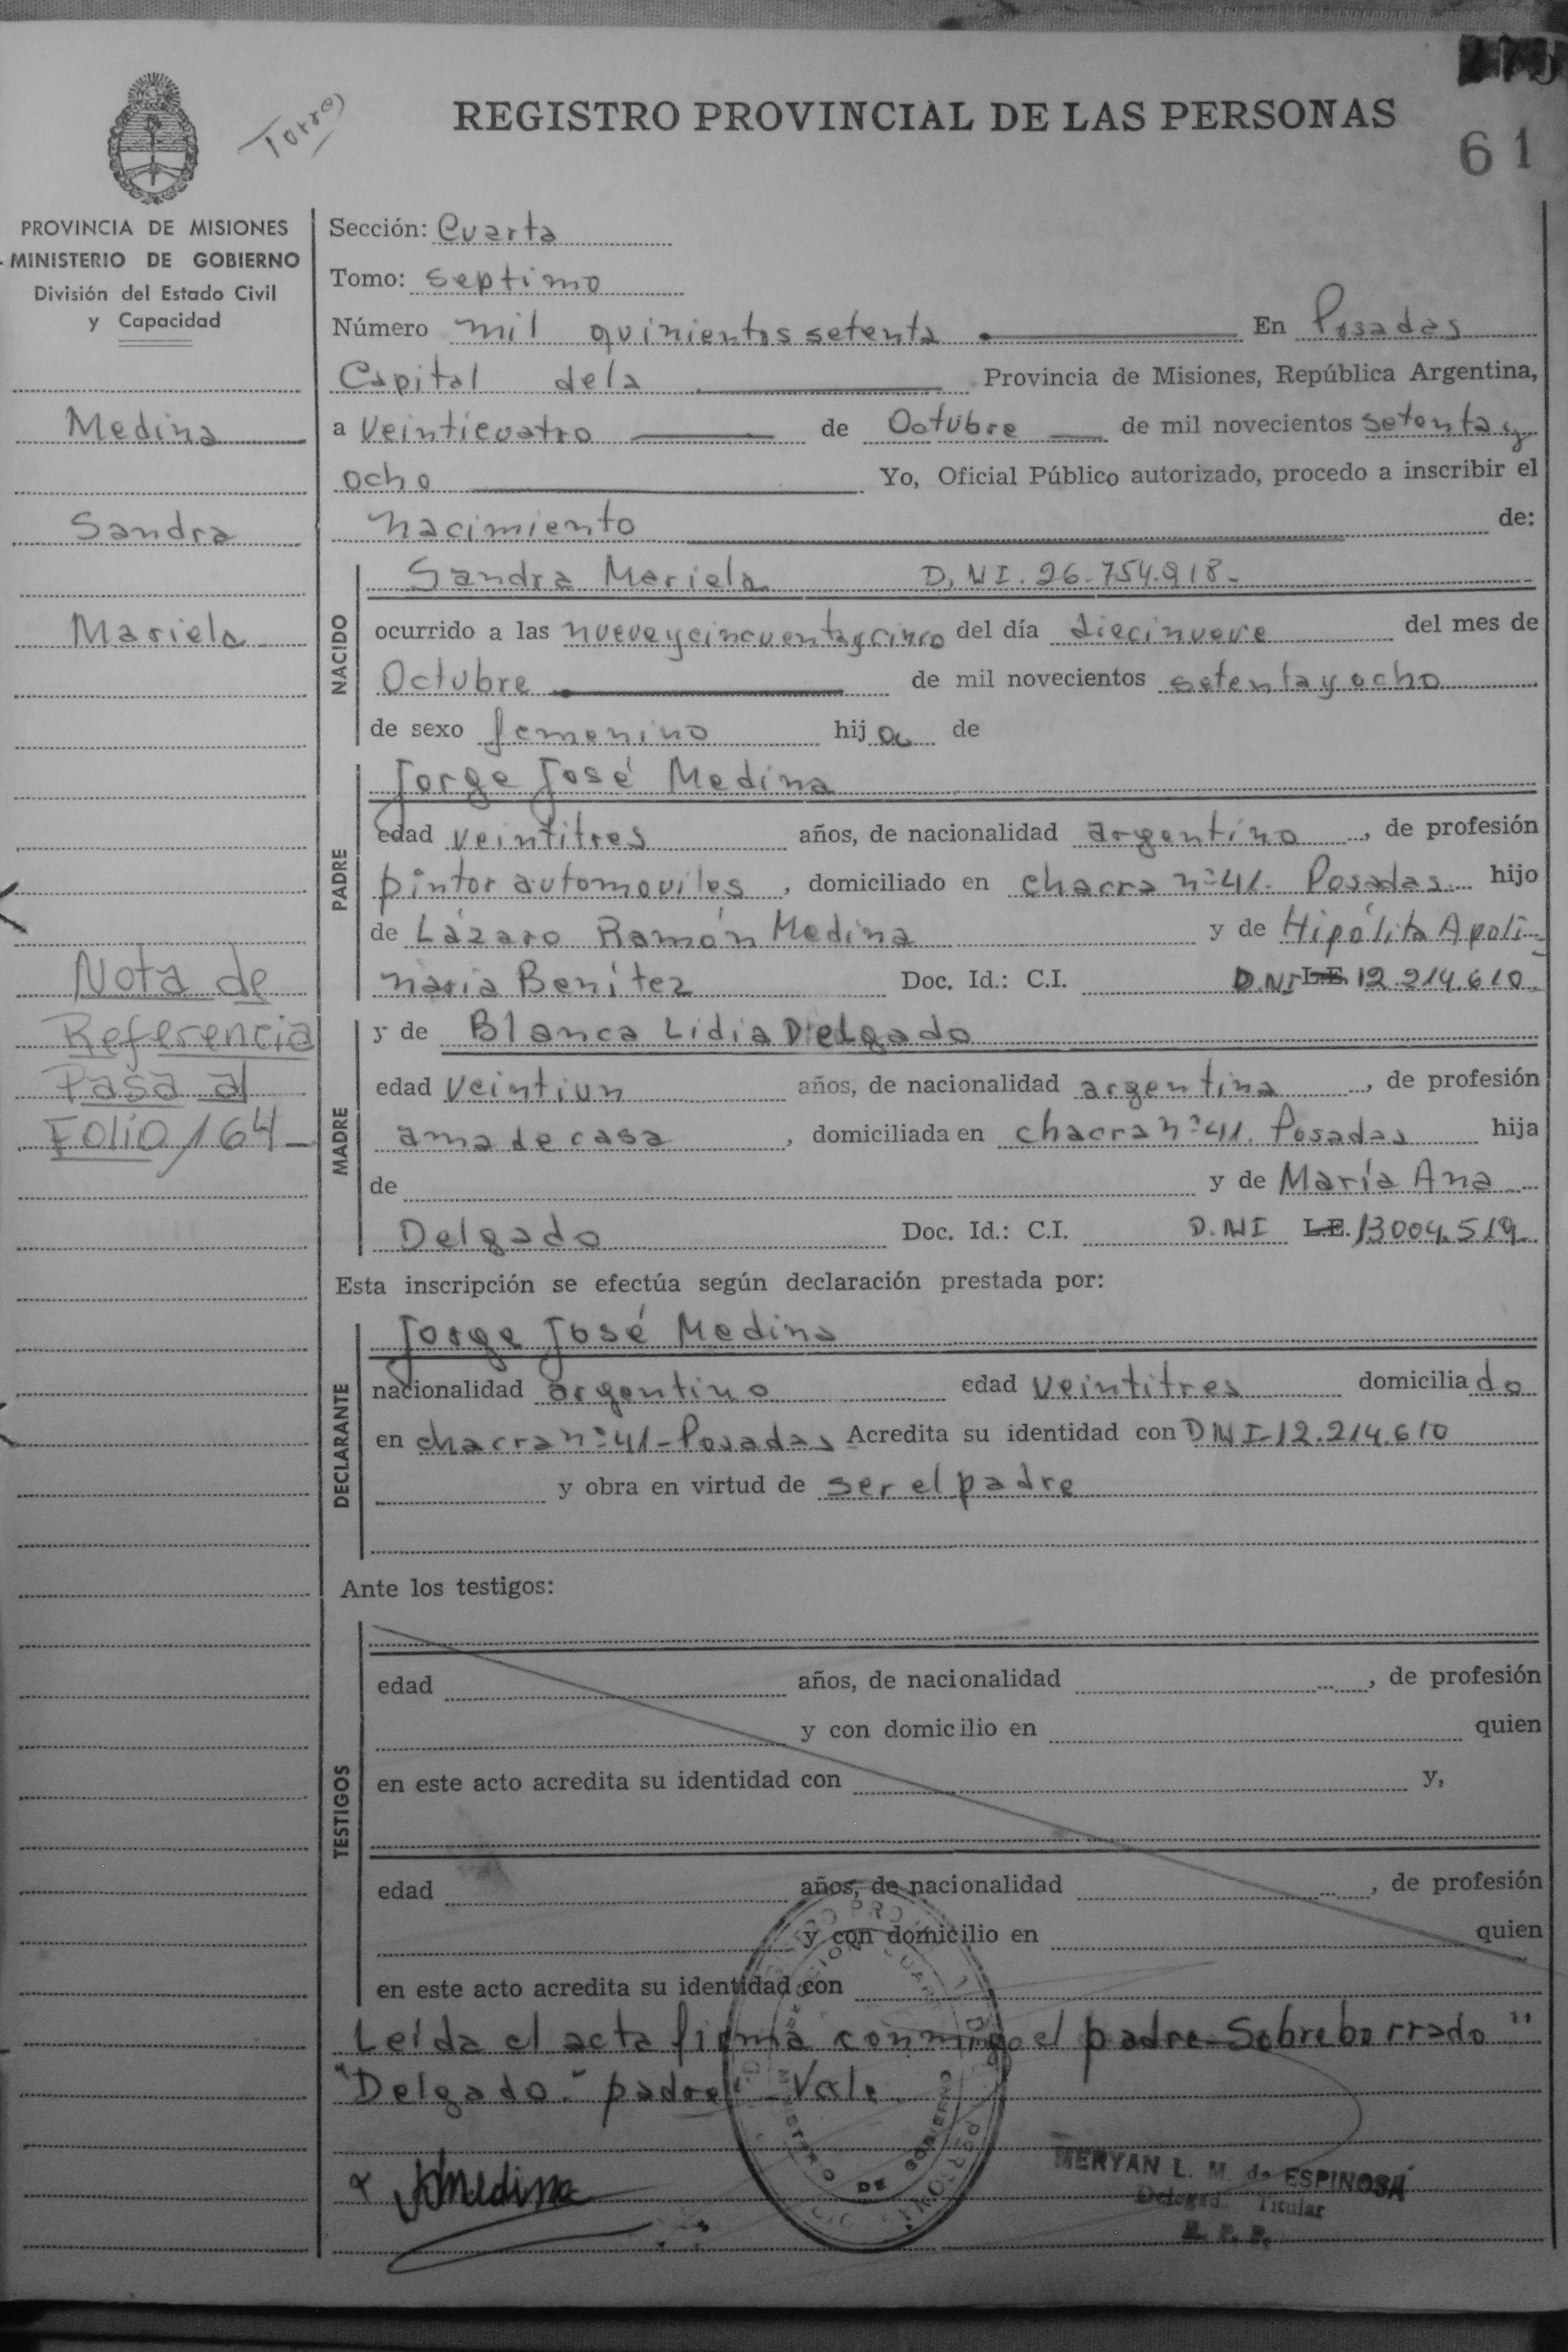 Torres
REGISTRO PROVINCIAL DE LAS PERSONAS
61
PROVINCIA DE MISIONES
MINISTERIO DE GOBIERNO
División del Estado Civil
y Capacidad
Medina
Sandra
Mariela
Nota de
Referencia
Pasa al
Folio/164-
Sección: Cuarta
Tomo: septimo
Número mil quinientos setenta En Posadas
Capital dela Provincia de Misiones, República Argentina,
a veinticuatro de Octubre de mil novecientos setenta y
ocho Yo, Oficial Público autorizado, procedo a inscribir el
nacimiento de:
NACIDO
Sandra Mariela D.NI. 26.754.918-
ocurrido a las nueve y cincuenta y cinco del día diecinueve del mes de
Octubre de mil novecientos setenta y ocho
de sexo femenino hija de
PADRE
Jorge José Medina
edad veintitres años, de nacionalidad argentino, de profesión
pintor automoviles, domiciliado en chacra nº 41. Posadas hijo
de Lázaro Ramón Medina y de Hipólita Apoli-
naria Benítez Doc. Id.: C.I. D.NI L.E. 12.214.610.
MADRE
y de Blanca Lidia Delgado
edad veintiun años, de nacionalidad argentina, de profesión
ama de casa, domiciliada en chacra nº 41. Posadas hija
de y de María Ana
Delgado Doc. Id.: C.I. D.NI L.E. 13004.519.
Esta inscripción se efectúa según declaración prestada por:
DECLARANTE
Jorge José Medina
nacionalidad argentino edad veintitres domiciliado
en chacra nº 41-Posadas Acredita su identidad con DNI-12.214.610
y obra en virtud de ser el padre
Ante los testigos:
TESTIGOS
edad años, de nacionalidad , de profesión
y con domicilio en quien
en este acto acredita su identidad con y,
edad años, de nacionalidad , de profesión
y con domicilio en quien
en este acto acredita su identidad con
Leída el acta firma conmigo el padre-Sobreborrado "
"Delgado-" padre". Vale.
Medina
MERYAN L. M. de ESPINOSA
Titular
R. P. P.